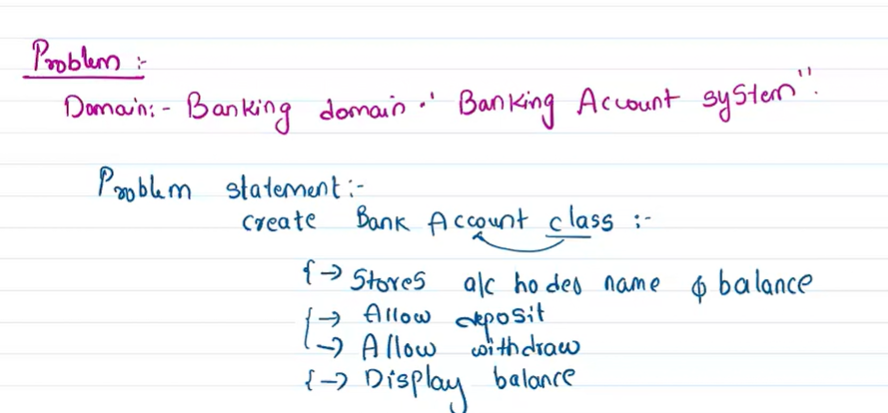 Problem :-
Domain:- Banking domain. "Banking Account system".
Problem statement:-
create Bank Account class :-
{→ Stores a/c hodes name & balance
{→ Allow deposit
→ Allow withdraw
{→ Display balance